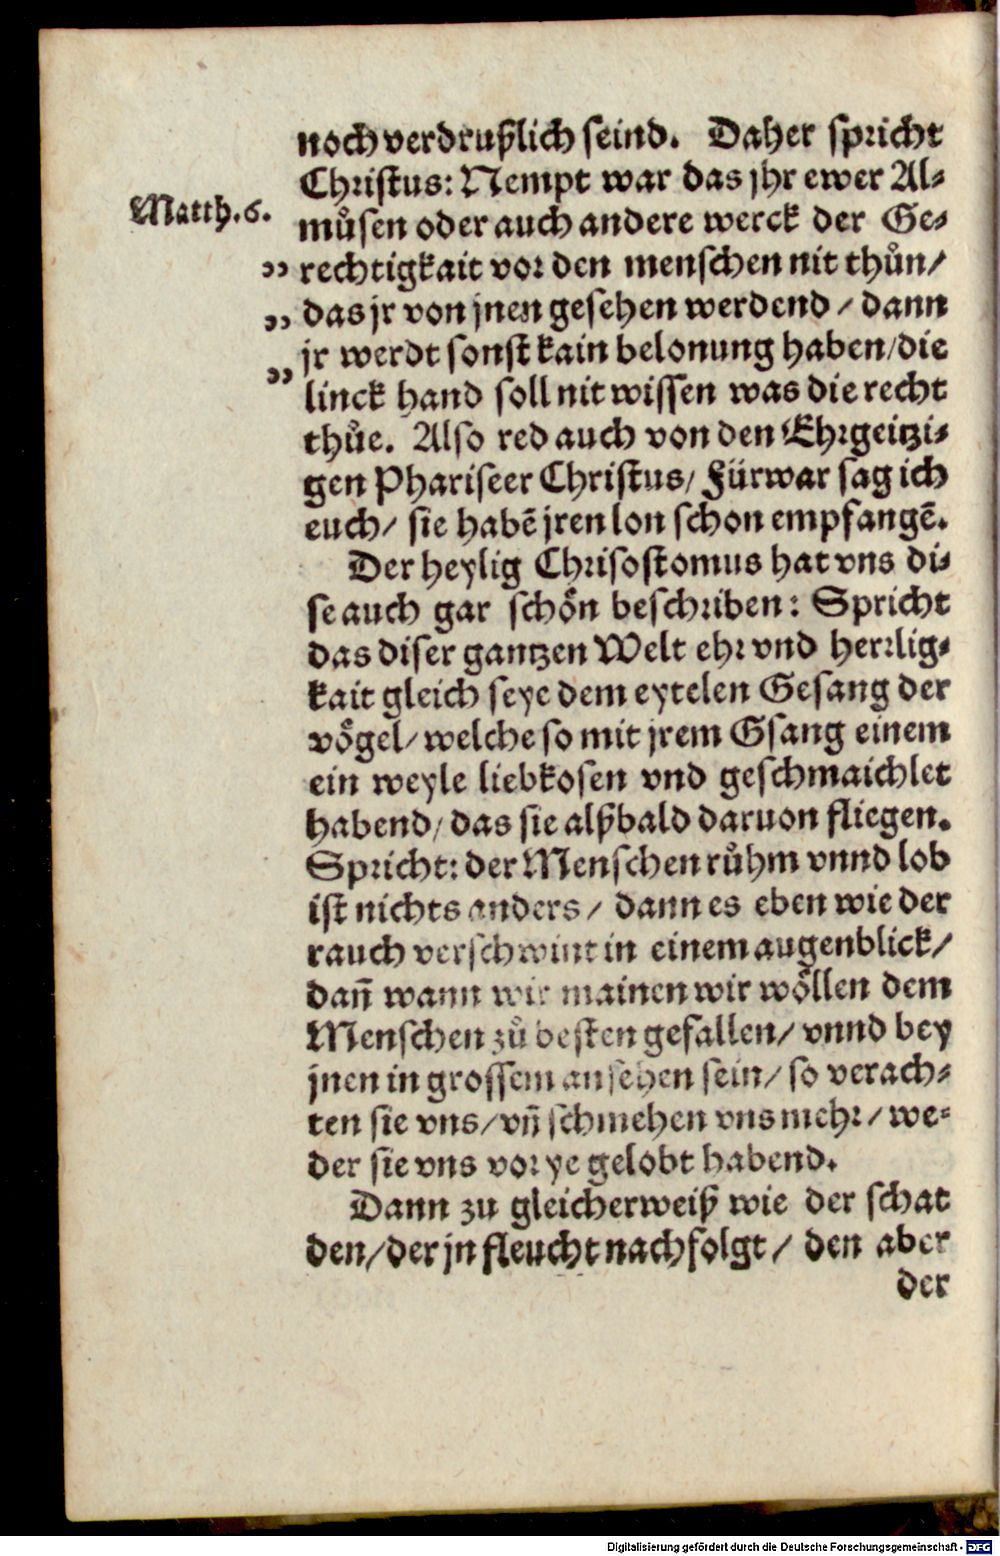 noch verdrußlich seind. Daher spricht
Christus: Nempt war das jhr ewer Al-
Matth. 6.
můsen oder auch andere werck der Ge-
„ rechtigkait vor den menschen nit thůn/
„ das jr von jnen gesehen werdend / dann
„ jr werdt sonst kain belonung haben/die
linck hand soll nit wissen was die recht
thůe. Also red auch von den Ehrgeitzi-
gen Phariseer Christus/ Fürwar sag ich
euch/ sie habē jren lon schon empfangē.
Der heylig Chrisostomus hat vns di-
se auch gar schön beschriben: Spricht
das diser gantzen Welt ehr vnd herrlig-
kait gleich seye dem eytelen Gesang der
vögel/ welche so mit jrem Gsang einem
ein weyle liebkosen vnd geschmaichlet
habend/ das sie alßbald daruon fliegen.
Spricht: der Menschen růhm vnnd lob
ist nichts anders / dann es eben wie der
rauch verschwint in einem augenblick/
dañ wann wir mainen wir wöllen dem
Menschen zů besten gefallen/ vnnd bey
jnen in grossem ansehen sein/ so verach-
ten sie vns/ vñ schmehen vns mehr / we-
der sie vns vor ye gelobt habend.
Dann zu gleicherweiß wie der schat
den/ der jn fleucht nachfolgt / den aber
der
Digitalisierung gefördert durch die Deutsche Forschungsgemeinschaft - DFG